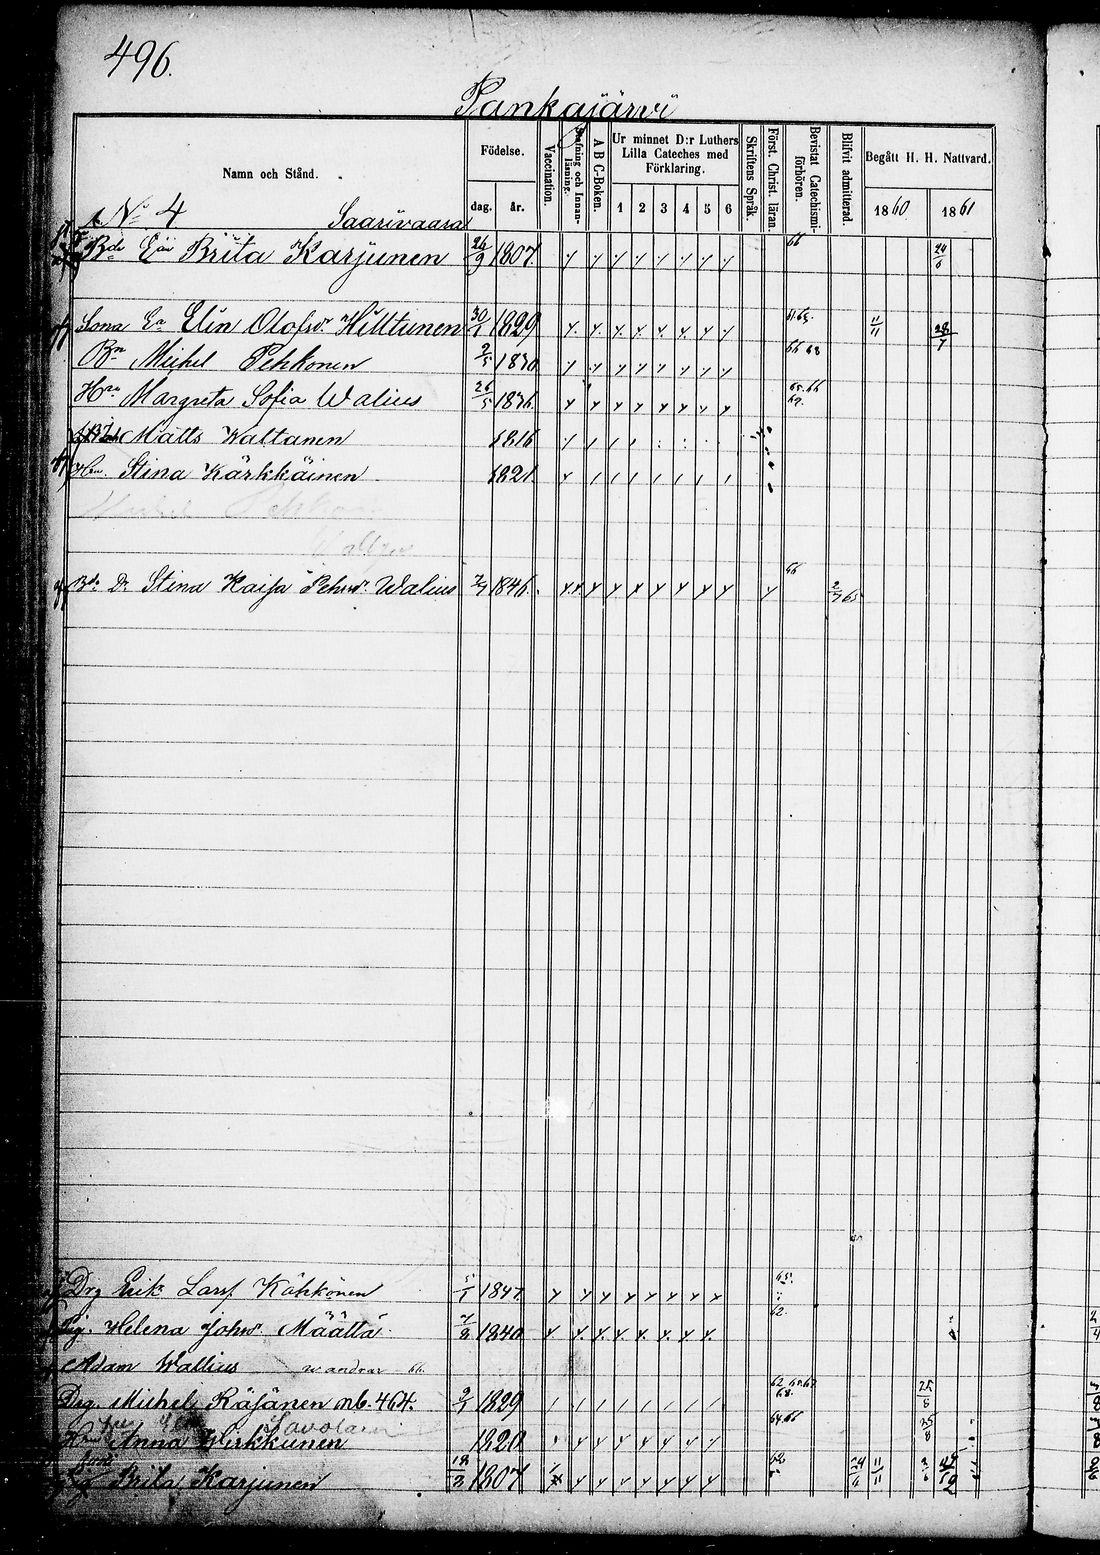 496.
Pankajärvi
Namn och Stånd.
Födelse.
dag.
år.
Vaccination.
Stafning och Innan-läsning.
A B C-Boken.
Ur minnet D:r Luthers Lilla Cateches med Förklaring.
1 2 3 4 5 6
Skriftens Språk.
Först. Christ. läran.
Bevistat Catechismi-förhören.
Blifvit admitterad.
Begått H. H. Nattvard.
1860 1861
No 4 Saarivaara
Brita Karjunen 26/9 1807 66 24/6
Elin Olofsdr Hilttunen 30/1 1829 11/11 28/7
Michel Pehkonen 2/5 1830 66 68
Hru Margreta Sofia Walius 26/5 1836
Matts Waltanen 1816
Hru Stina Kärkkäinen 1821
Stina Kaisa Walius 1846 66 2/7 65
Drg Erik Larss Kähkönen 5/1 1847 65
Pig. Helena Johsdr Määttä 1840 62.
Adam Wallius wandrar 66
Drg. Michel Räisänen mb. 464. 1829 25/8
Savolain
Hru Anna Wirkkunen 1820 64 66 25/8
Pig Brita Karjunen 1807 62 11/11